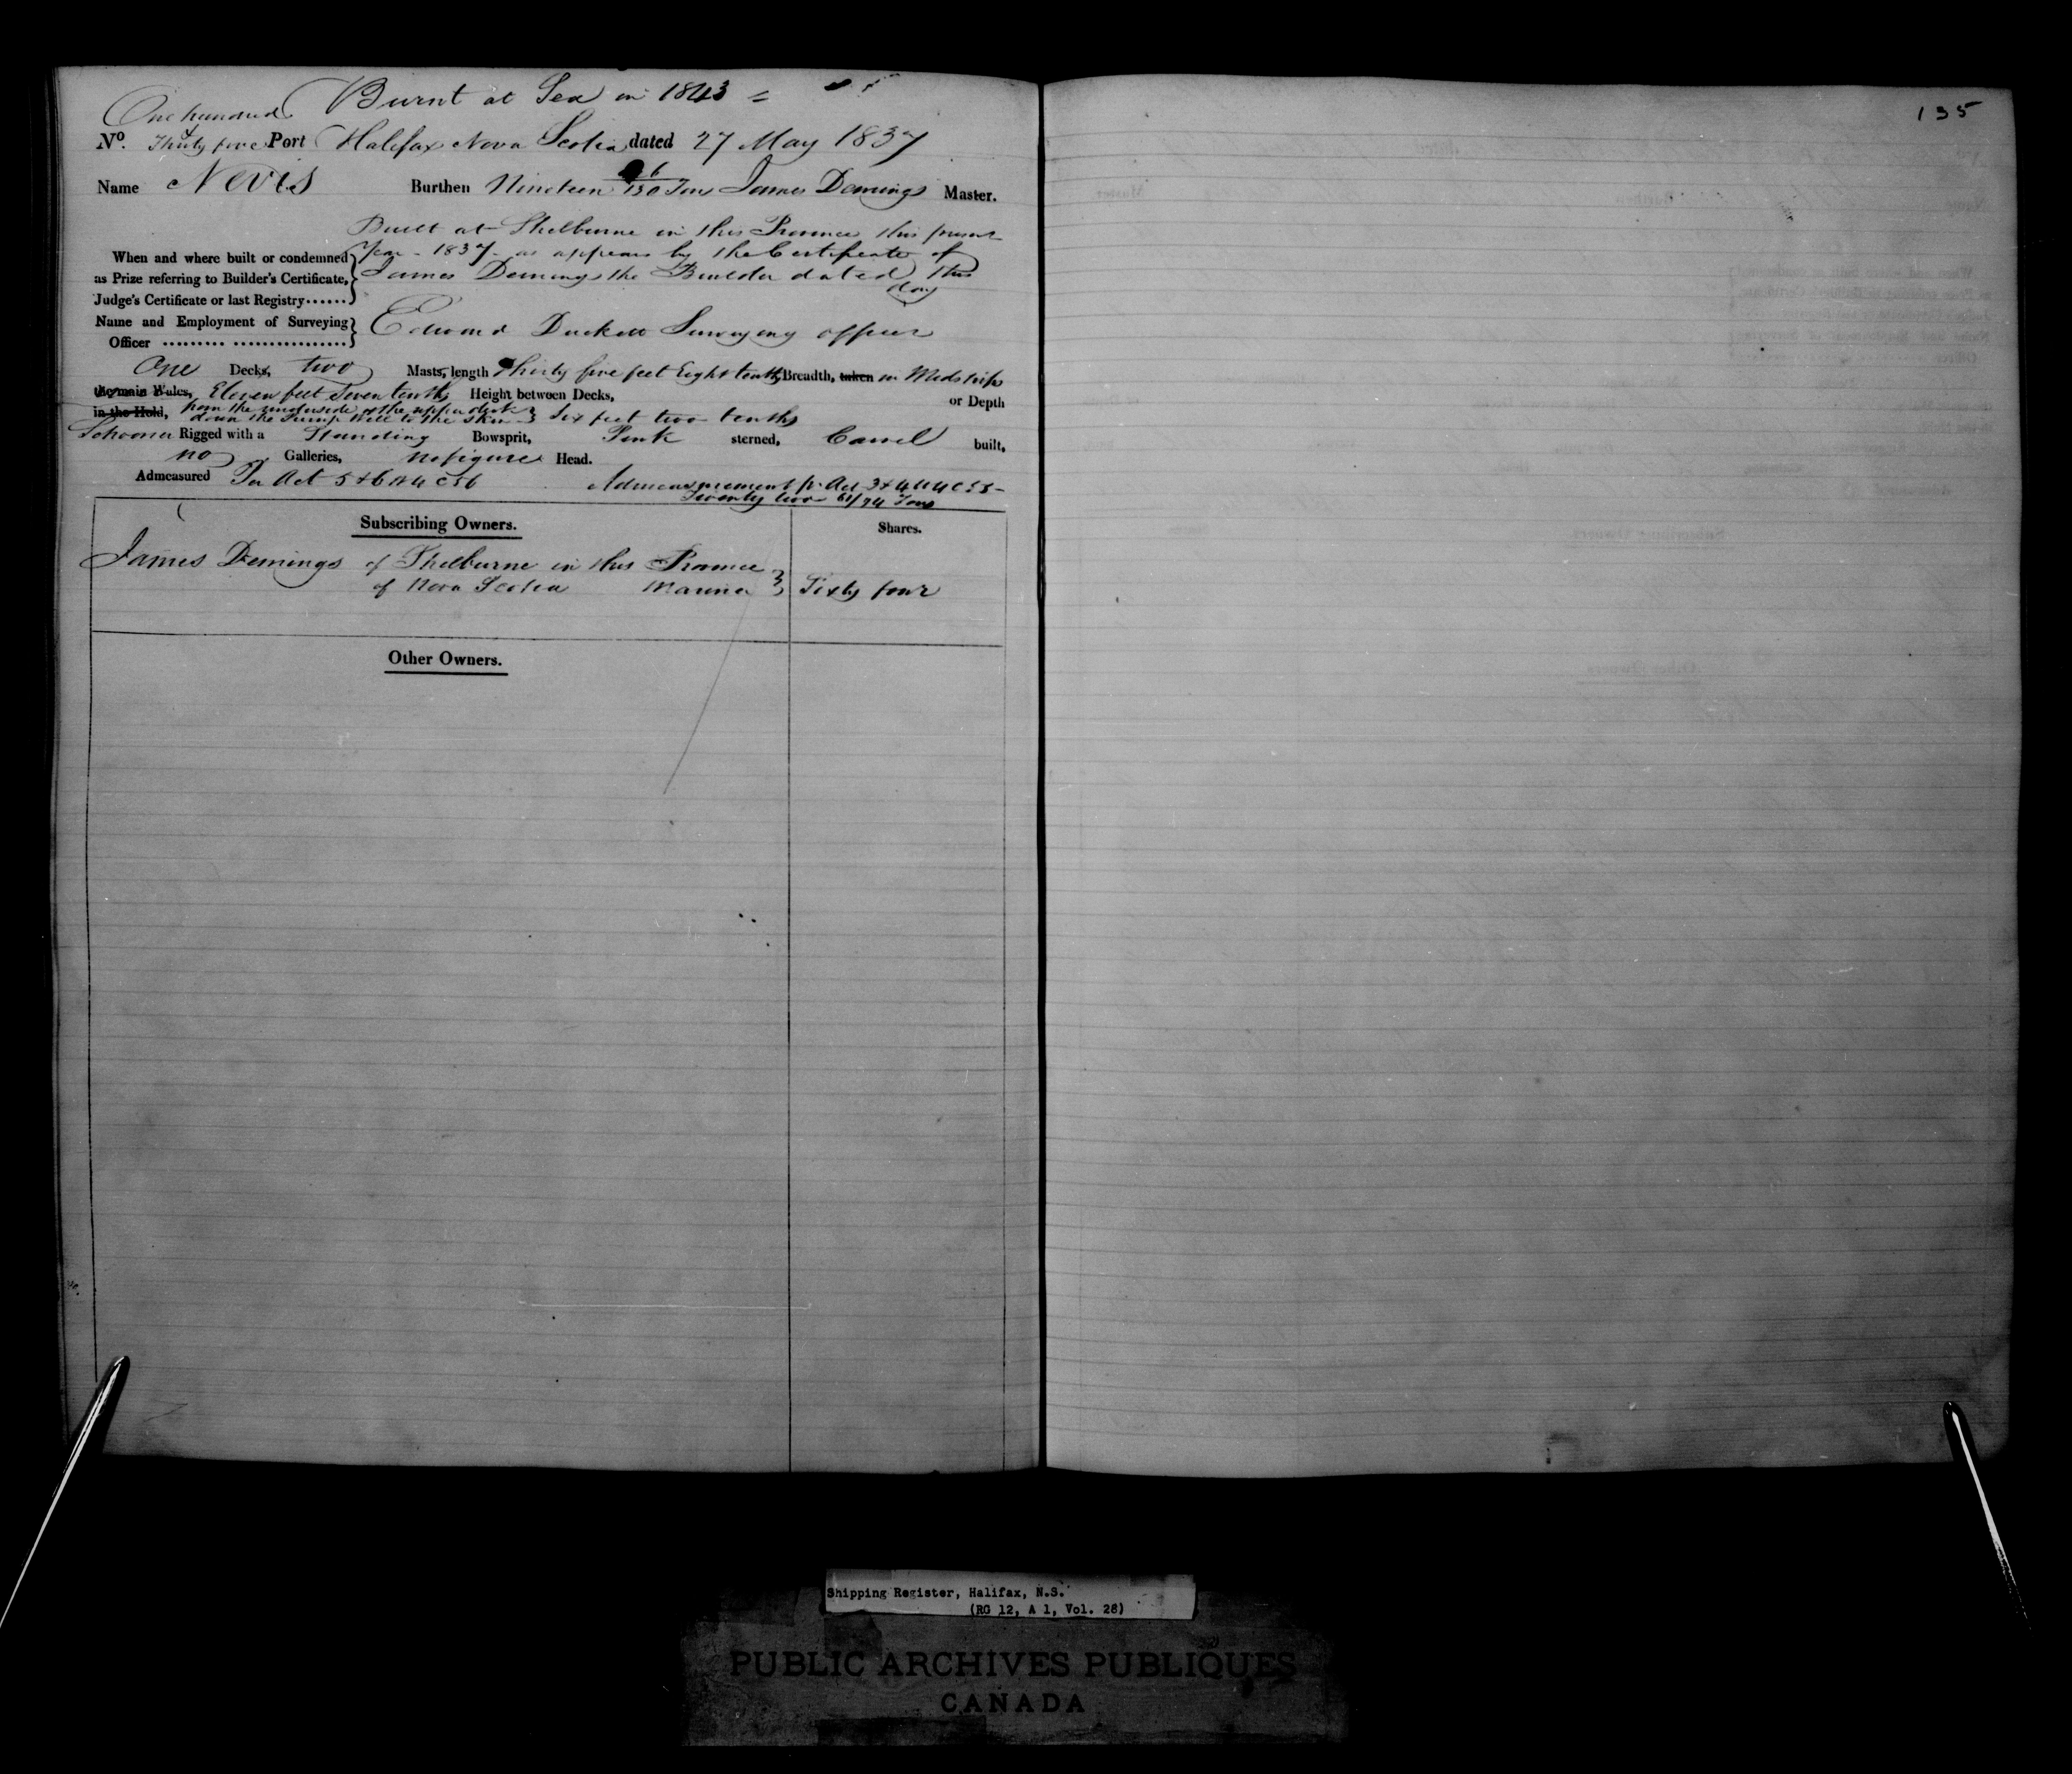 Burnt at Sea in 1843
135
One hundred &
No. Thirty five Port Halifax Nova Scotia dated 27 May 1837
Name Nevis Burthen Nineteen /130 Tons James Demings Master.
Built at Shelburne in this Province this present
When and where built or condemned year 1837 as appears by the Certificate of
as Prize referring to Builder's Certificate, James Demings the Builder dated this
Judge's Certificate or last Registry...... day
Name and Employment of Surveying Edward Duckett Surveying officer
Officer ......... ................
One Decks, two Masts, length Thirty five feet Eight tenths Breadth, taken in Midships
the main Wales, Eleven feet Seven tenths Height between Decks, or Depth
in the Hold, from the underside of the upper deck
down the Pump Well to the skin Six feet two tenths
Schooner Rigged with a Standing Bowsprit, Pink sterned, Carvel built,
no Galleries, no figure Head.
Admeasured Per Act 5 & 6 W 4 C 56 Admeasurement pr Act 3 & 4 W 4 C 55
Twenty two 61/94 Tons
Subscribing Owners. Shares.
James Demings of Shelburne in this Province
of Nova Scotia Mariner Sixty four
Other Owners.
Shipping Register, Halifax, N.S.
(RG 12, A 1, Vol. 28)
PUBLIC ARCHIVES PUBLIQUES
CANADA